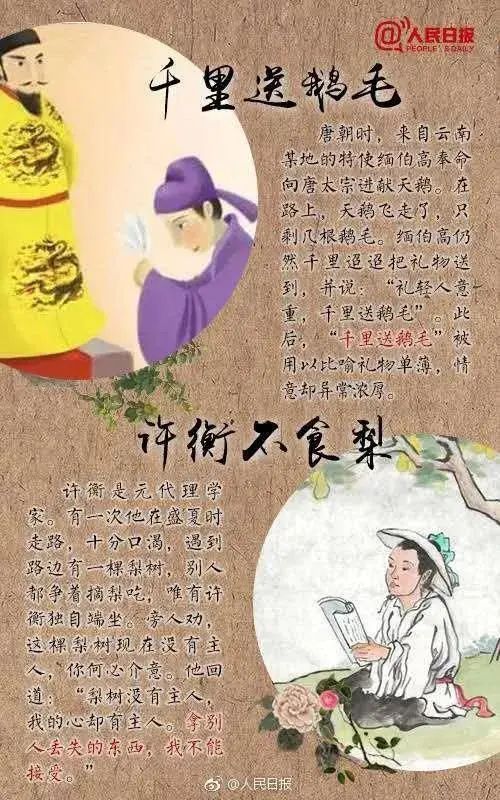 @人民日报
PEOPLE'S DAILY
千里送鹅毛
唐朝时，来自云南
某地的特使缅伯高奉命
向唐太宗进献天鹅。在
路上，天鹅飞走了，只
剩几根鹅毛。缅伯高仍
然千里迢迢把礼物送
到，并说：“礼轻人意
重，千里送鹅毛”。此
后，“千里送鹅毛”被
用以比喻礼物单薄，情
意却异常浓厚。
许衡不食梨
许衡是元代理学
家。有一次他在盛夏时
走路，十分口渴，遇到
路边有一棵梨树，别人
都争着摘梨吃，唯有许
衡独自端坐。旁人劝，
这棵梨树现在没有主
人，你何必介意。他回
道：“梨树没有主人，
我的心却有主人。拿别
人丢失的东西，我不能
接受。”
@人民日报